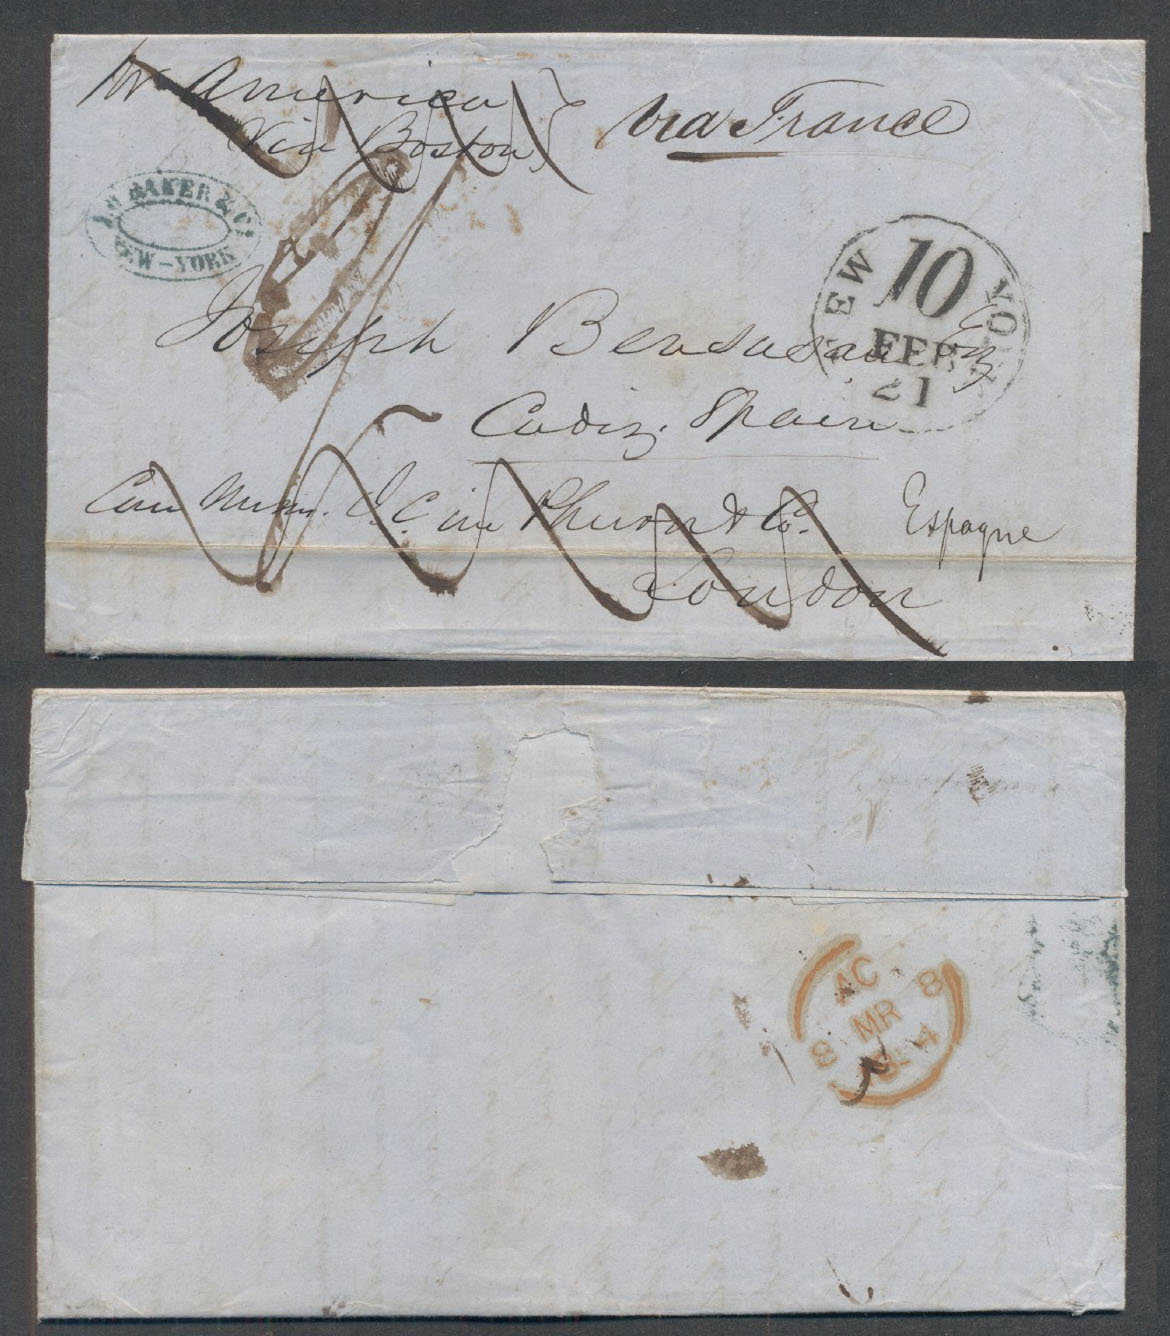 pr America
Via Boston
via France
BAKER & Co
NEW-YORK
NEW YORK
10
FEB
21
Joseph Bensusan Esq
Cadiz. Spain
Care Messrs. J. C. im Thurn & Co.
London
Espagne
AC
8 MR 8
1854